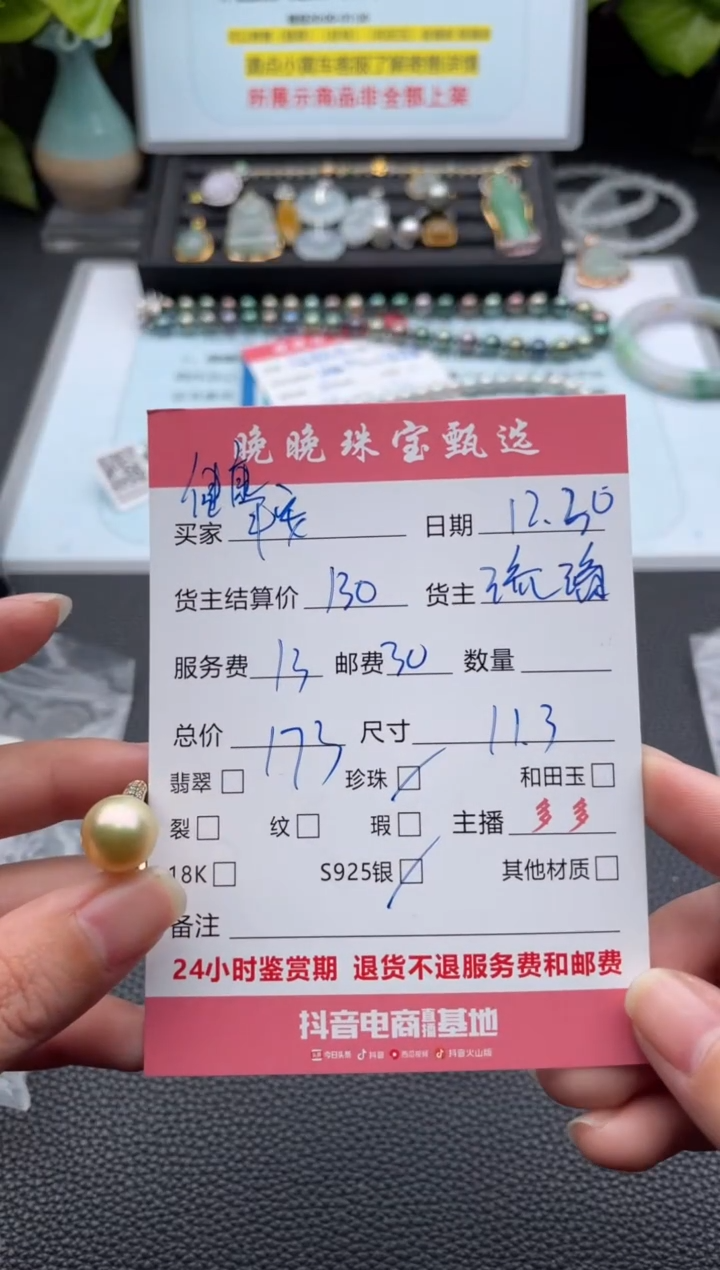 请点小黄车客服了解寄售详情
所展示商品非全部上架
晚晚珠宝甄选
买家 健康 平安 日期 12.30
货主结算价 130 货主
服务费 13 邮费 30 数量
总价 173 尺寸 11.3
翡翠 珍珠 和田玉
裂 纹 瑕 主播 多多
18K S925银 其他材质
备注
24小时鉴赏期 退货不退服务费和邮费
抖音电商直播基地
今日头条 抖音 西瓜视频 抖音火山版